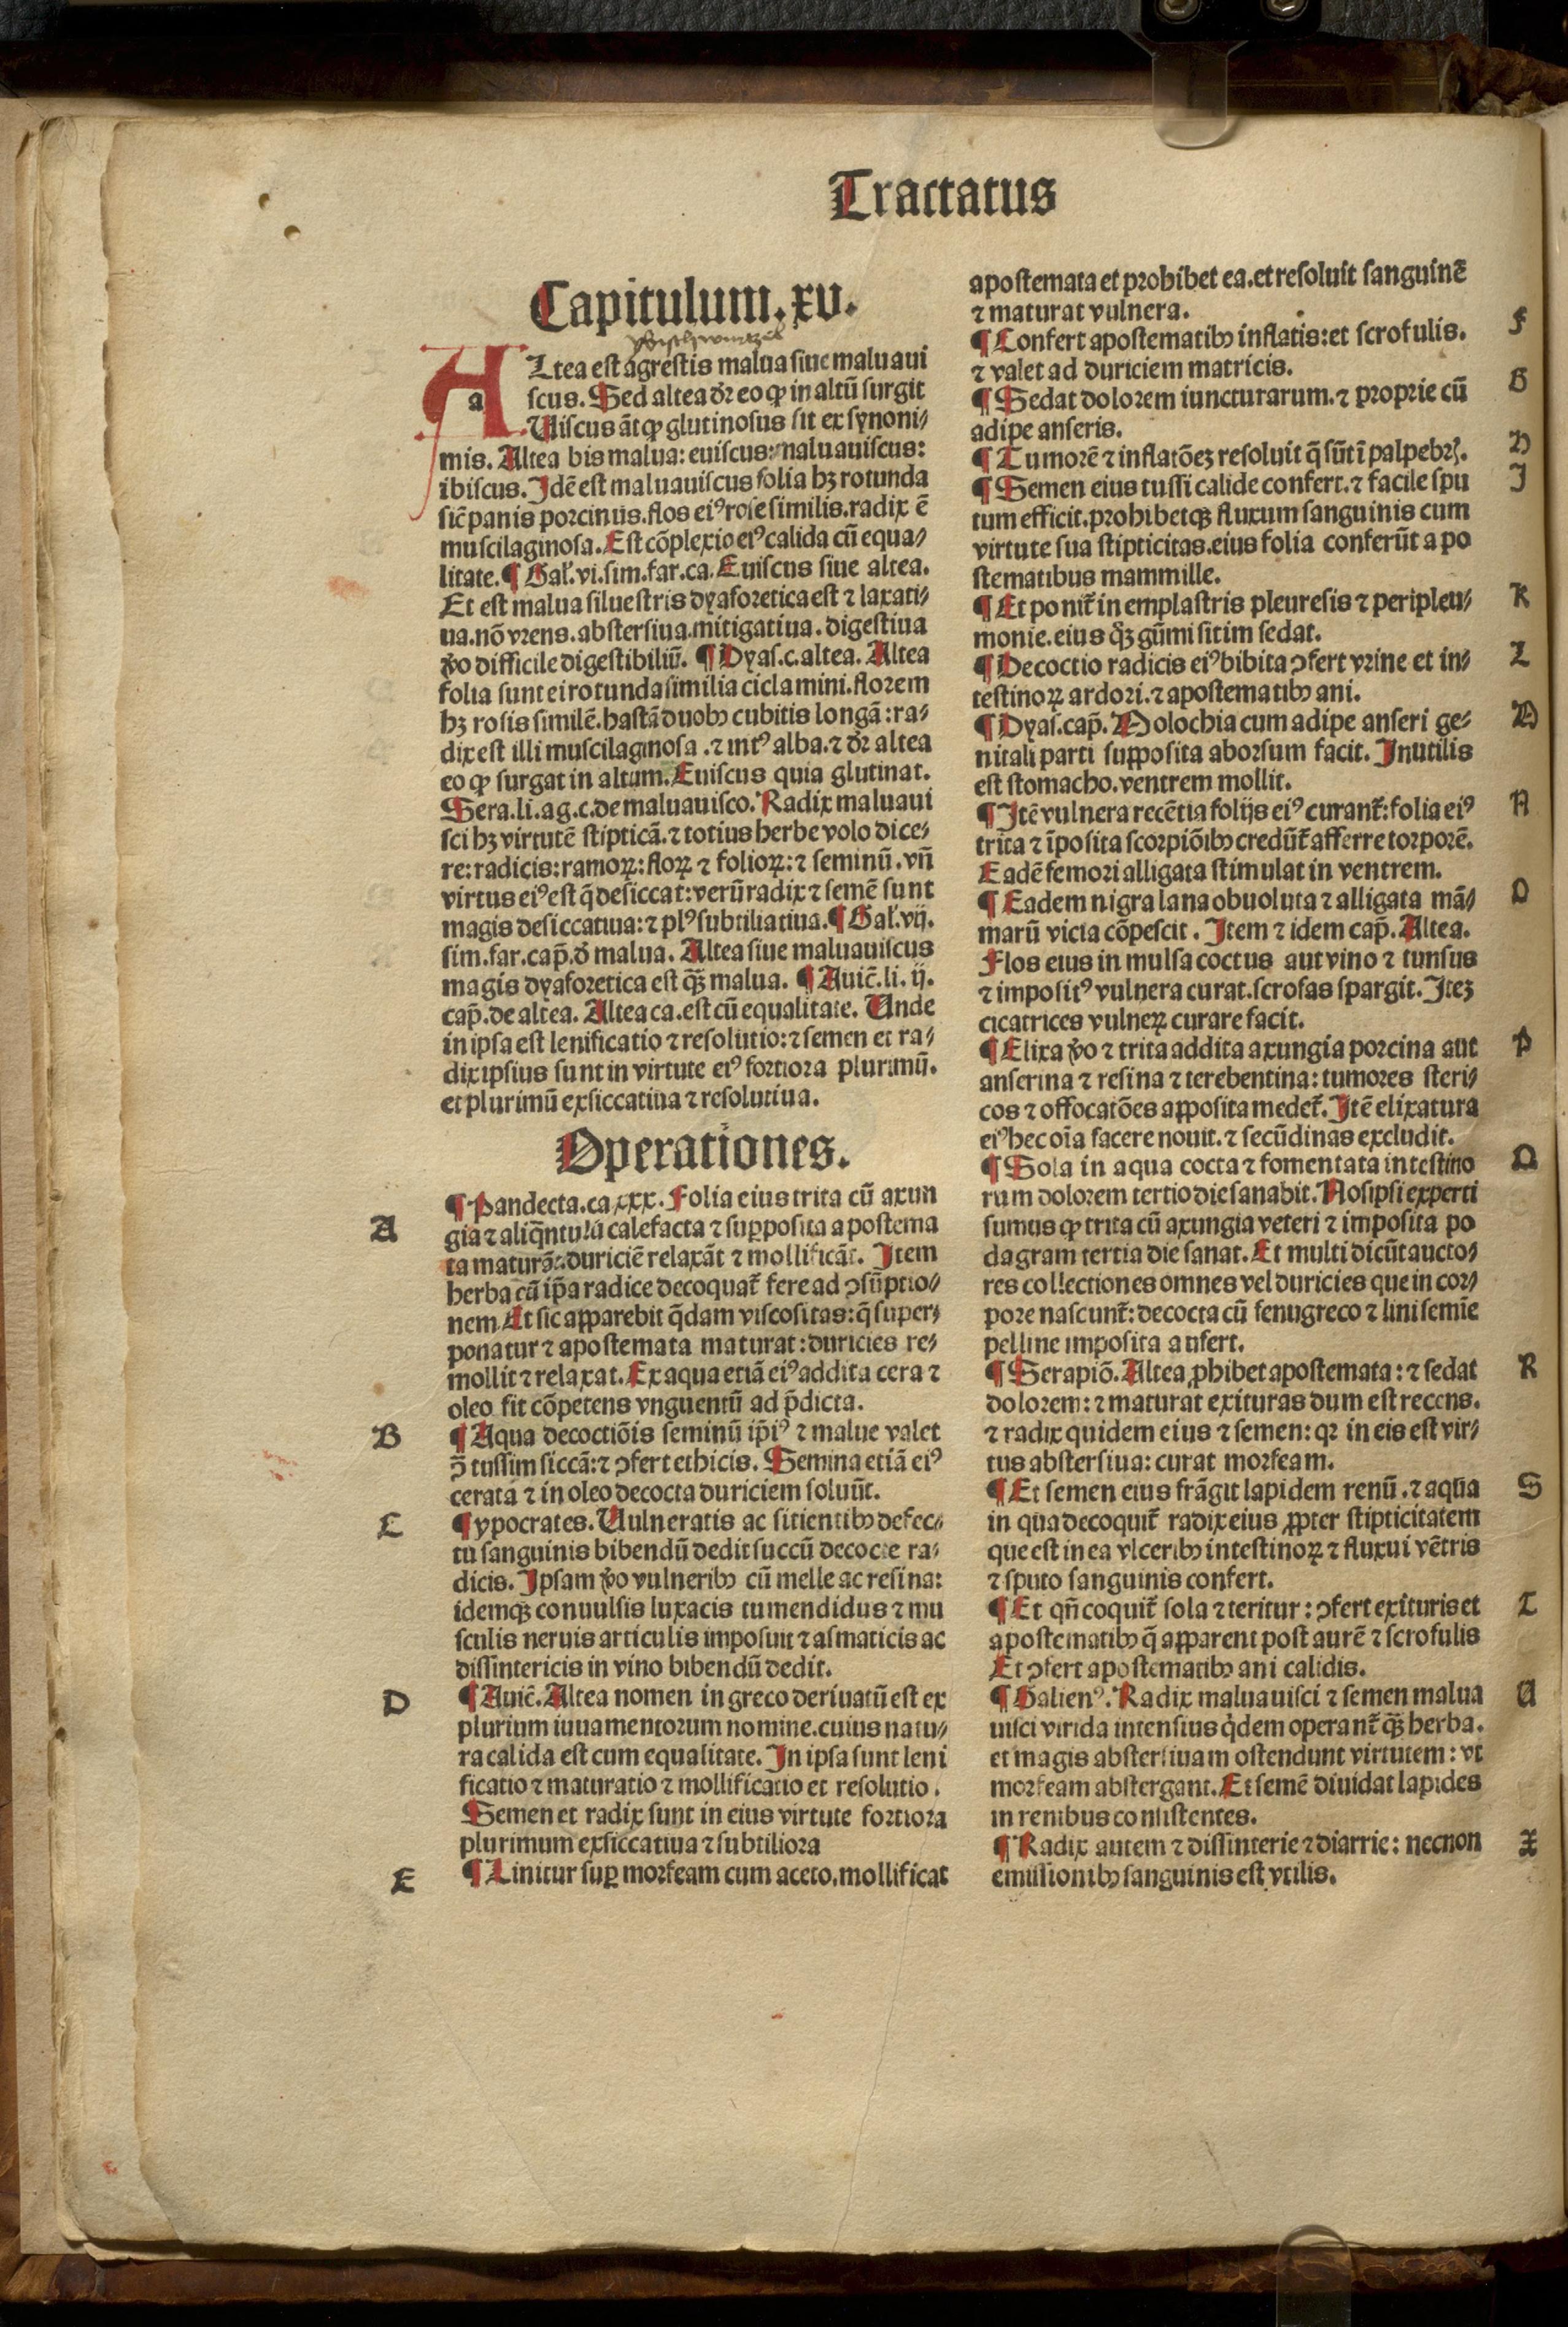 Tractatus
Capitulum. xv.
ALtea est agrestis malua siue maluaui
a
scus. Sed altea dr̄ eo ꝙ in altū surgit
Uiscus āt ꝙ glutinosus sit ex synoni⸗
mis. Altea bis malua: euiscus: maluauiscus:
ibiscus. Idē est maluauiscus folia hꝫ rotunda
sic̄ panis porcinus. flos eiꝰ rose similis. radix ē
muscilaginosa. Est cōplexio eiꝰ calida cū equa⸗
litate. ¶ Gal'. vi. sim. far. ca. Euiscus siue altea.
Et est malua siluestris dyaforetica est ⁊ laxati⸗
ua. nō vrens. abstersiua. mitigatiua. digestiua
v̄o difficile digestibiliū. ¶ Dyas. c. altea. Altea
folia sunt ei rotunda similia ciclamini. florem
hꝫ rosis similē. hastā duobꝰ cubitis longā: ra⸗
dix est illi muscilaginosa. ⁊ intꝰ alba. ⁊ dr̄ altea
eo ꝙ surgat in altum. Euiscus quia glutinat.
Sera. li. ag. c. de maluauisco. Radix maluaui
sci hꝫ virtutē stipticā. ⁊ totius herbe volo dice⸗
re: radicis: ramoꝝ: floꝝ ⁊ folioꝝ: ⁊ seminū. vn̄
virtus eiꝰ est q̄ desiccat: verū radix ⁊ semē sunt
magis desiccatiua: ⁊ plꝰ subtiliatiua. ¶ Gal'. vij.
sim. far. cap̄. d̄ malua. Altea siue maluauiscus
magis dyaforetica est q̄ꝫ malua. ¶ Auic̄. li. ij.
cap̄. de altea. Altea ca. est cū equalitate. Unde
in ipsa est lenificatio ⁊ resolutio: ⁊ semen et ra⸗
dix ipsius sunt in virtute eiꝰ fortiora plurimū.
et plurimū exsiccatiua ⁊ resolutiua.
Operationes.
¶ Pandecta. ca xxx. Folia eius trita cū axun
A
gia ⁊ aliq̄ntulū calefacta ⁊ supposita apostema
ta maturāt: duriciē relaxāt ⁊ mollificāt. Item
herba cū ip̄a radice decoquat̄ fere ad ↄsūptio⸗
nem. Et sic apparebit q̄dam viscositas: q̄ super⸗
ponatur ⁊ apostemata maturat: duricies re⸗
mollit ⁊ relaxat. Ex aqua etiā eiꝰ addita cera ⁊
oleo fit cōpetens vnguentū ad p̄dicta.
B
¶ Aqua decoctiōis seminū ip̄iꝰ ⁊ malue valet
ↄ̄ tussim siccā: ⁊ ↄfert ethicis. Semina etiā eiꝰ
cerata ⁊ in oleo decocta duriciem soluūt.
C
¶ ypocrates. Uulneratis ac sitientibꝰ defec⸗
tu sanguinis bibendū dedit succū decocte ra⸗
dicis. Ipsam v̄o vulneribꝰ cū melle ac resina:
idemqꝫ conuulsis luxacis tumendidus ⁊ mu
sculis neruis articulis imposuit ⁊ asmaticis ac
dissintericis in vino bibendū dedit.
D
¶ Auic̄. Altea nomen in greco deriuatū est ex
plurium iuuamentorum nomine. cuius natu⸗
ra calida est cum equalitate. In ipsa sunt leni
ficatio ⁊ maturatio ⁊ mollificatio et resolutio.
Semen et radix sunt in eius virtute fortiora
plurimum exsiccatiua ⁊ subtiliora
E
¶ Linitur suꝑ morfeam cum aceto. mollificat
apostemata et prohibet ea. et resoluit sanguinē
⁊ maturat vulnera.
F
¶ Confert apostematibꝰ inflatis: et scrofulis.
⁊ valet ad duriciem matricis.
G
¶ Sedat dolorem iuncturarum. ⁊ proprie cū
adipe anseris.
H
¶ Tumorē ⁊ inflatōeꝫ resoluit q̄ sūt ī palpebrꝭ.
I
¶ Semen eius tussi calide confert. ⁊ facile spu
tum efficit. prohibetqꝫ fluxum sanguinis cum
virtute sua stipticitas. eius folia conferūt apo
stematibus mammille.
K
¶ Et ponit̄ in emplastris pleuresis ⁊ peripleu⸗
monie. eius q̄ꝫ gūmi sitim sedat.
L
¶ Decoctio radicis eiꝰ bibita ↄfert vrine et in⸗
testinoꝝ ardori. ⁊ apostematibꝰ ani.
M
¶ Dyas. cap̄. Molochia cum adipe anseri ge⸗
nitali parti supposita aborsum facit. Inutilis
est stomacho. ventrem mollit.
N
¶ Itē vulnera recētia folijs eiꝰ curant̄: folia eiꝰ
trita ⁊ īposita scorpiōibꝰ credūt̄ afferre torporē.
Eadē femori alligata stimulat in ventrem.
O
¶ Eadem nigra lana obuoluta ⁊ alligata mā⸗
marū vicia cōpescit. Item ⁊ idem cap̄. Altea.
Flos eius in mulsa coctus aut vino ⁊ tunsus
⁊ impositꝰ vulnera curat. scrofas spargit. Iteꝫ
cicatrices vulneꝝ curare facit.
P
¶ Elixa v̄o ⁊ trita addita axungia porcina aut
anserina ⁊ resina ⁊ terebentina: tumores steri⸗
cos ⁊ offocatōes apposita medet̄. Itē elixatura
eiꝰ hec oīa facere nouit. ⁊ secūdinas excludit.
Q
¶ Sola in aqua cocta ⁊ fomentata intestino
rum dolorem tertio die sanabit. Nos ipsi experti
sumus ꝙ trita cū axungia veteri ⁊ imposita po
dagram tertia die sanat. Et multi dicūt aucto⸗
res collectiones omnes vel duricies que in cor⸗
pore nascunt̄: decocta cū fenugreco ⁊ lini semīe
pelline imposita aufert.
R
¶ Serapiō. Altea ꝓhibet apostemata: ⁊ sedat
dolorem: ⁊ maturat exituras dum est recens.
⁊ radix quidem eius ⁊ semen: qꝛ in eis est vir⸗
tus abstersiua: curat morfeam.
S
¶ Et semen eius frāgit lapidem renū. ⁊ aqua
in qua decoquit̄ radix eius ꝓpter stipticitatem
que est in ea vlceribꝰ intestinoꝝ ⁊ fluxui vētris
⁊ sputo sanguinis confert.
T
¶ Et qn̄ coquit̄ sola ⁊ teritur: ↄfert exituris et
apostematibꝰ q̄ apparent post aurē ⁊ scrofulis
Et ↄfert apostematibꝰ ani calidis.
U
¶ Galienꝰ. Radix maluauisci ⁊ semen malua
uisci virida intensius q̇dem operant̄ q̄ꝫ herba.
et magis abstersiuam ostendunt virtutem: vt
morfeam abstergant. Et semē diuidat lapides
in renibus consistentes.
X
¶ Radix autem ⁊ dissinterie ⁊ diarrie: necnon
emissionibꝰ sanguinis est vtilis.